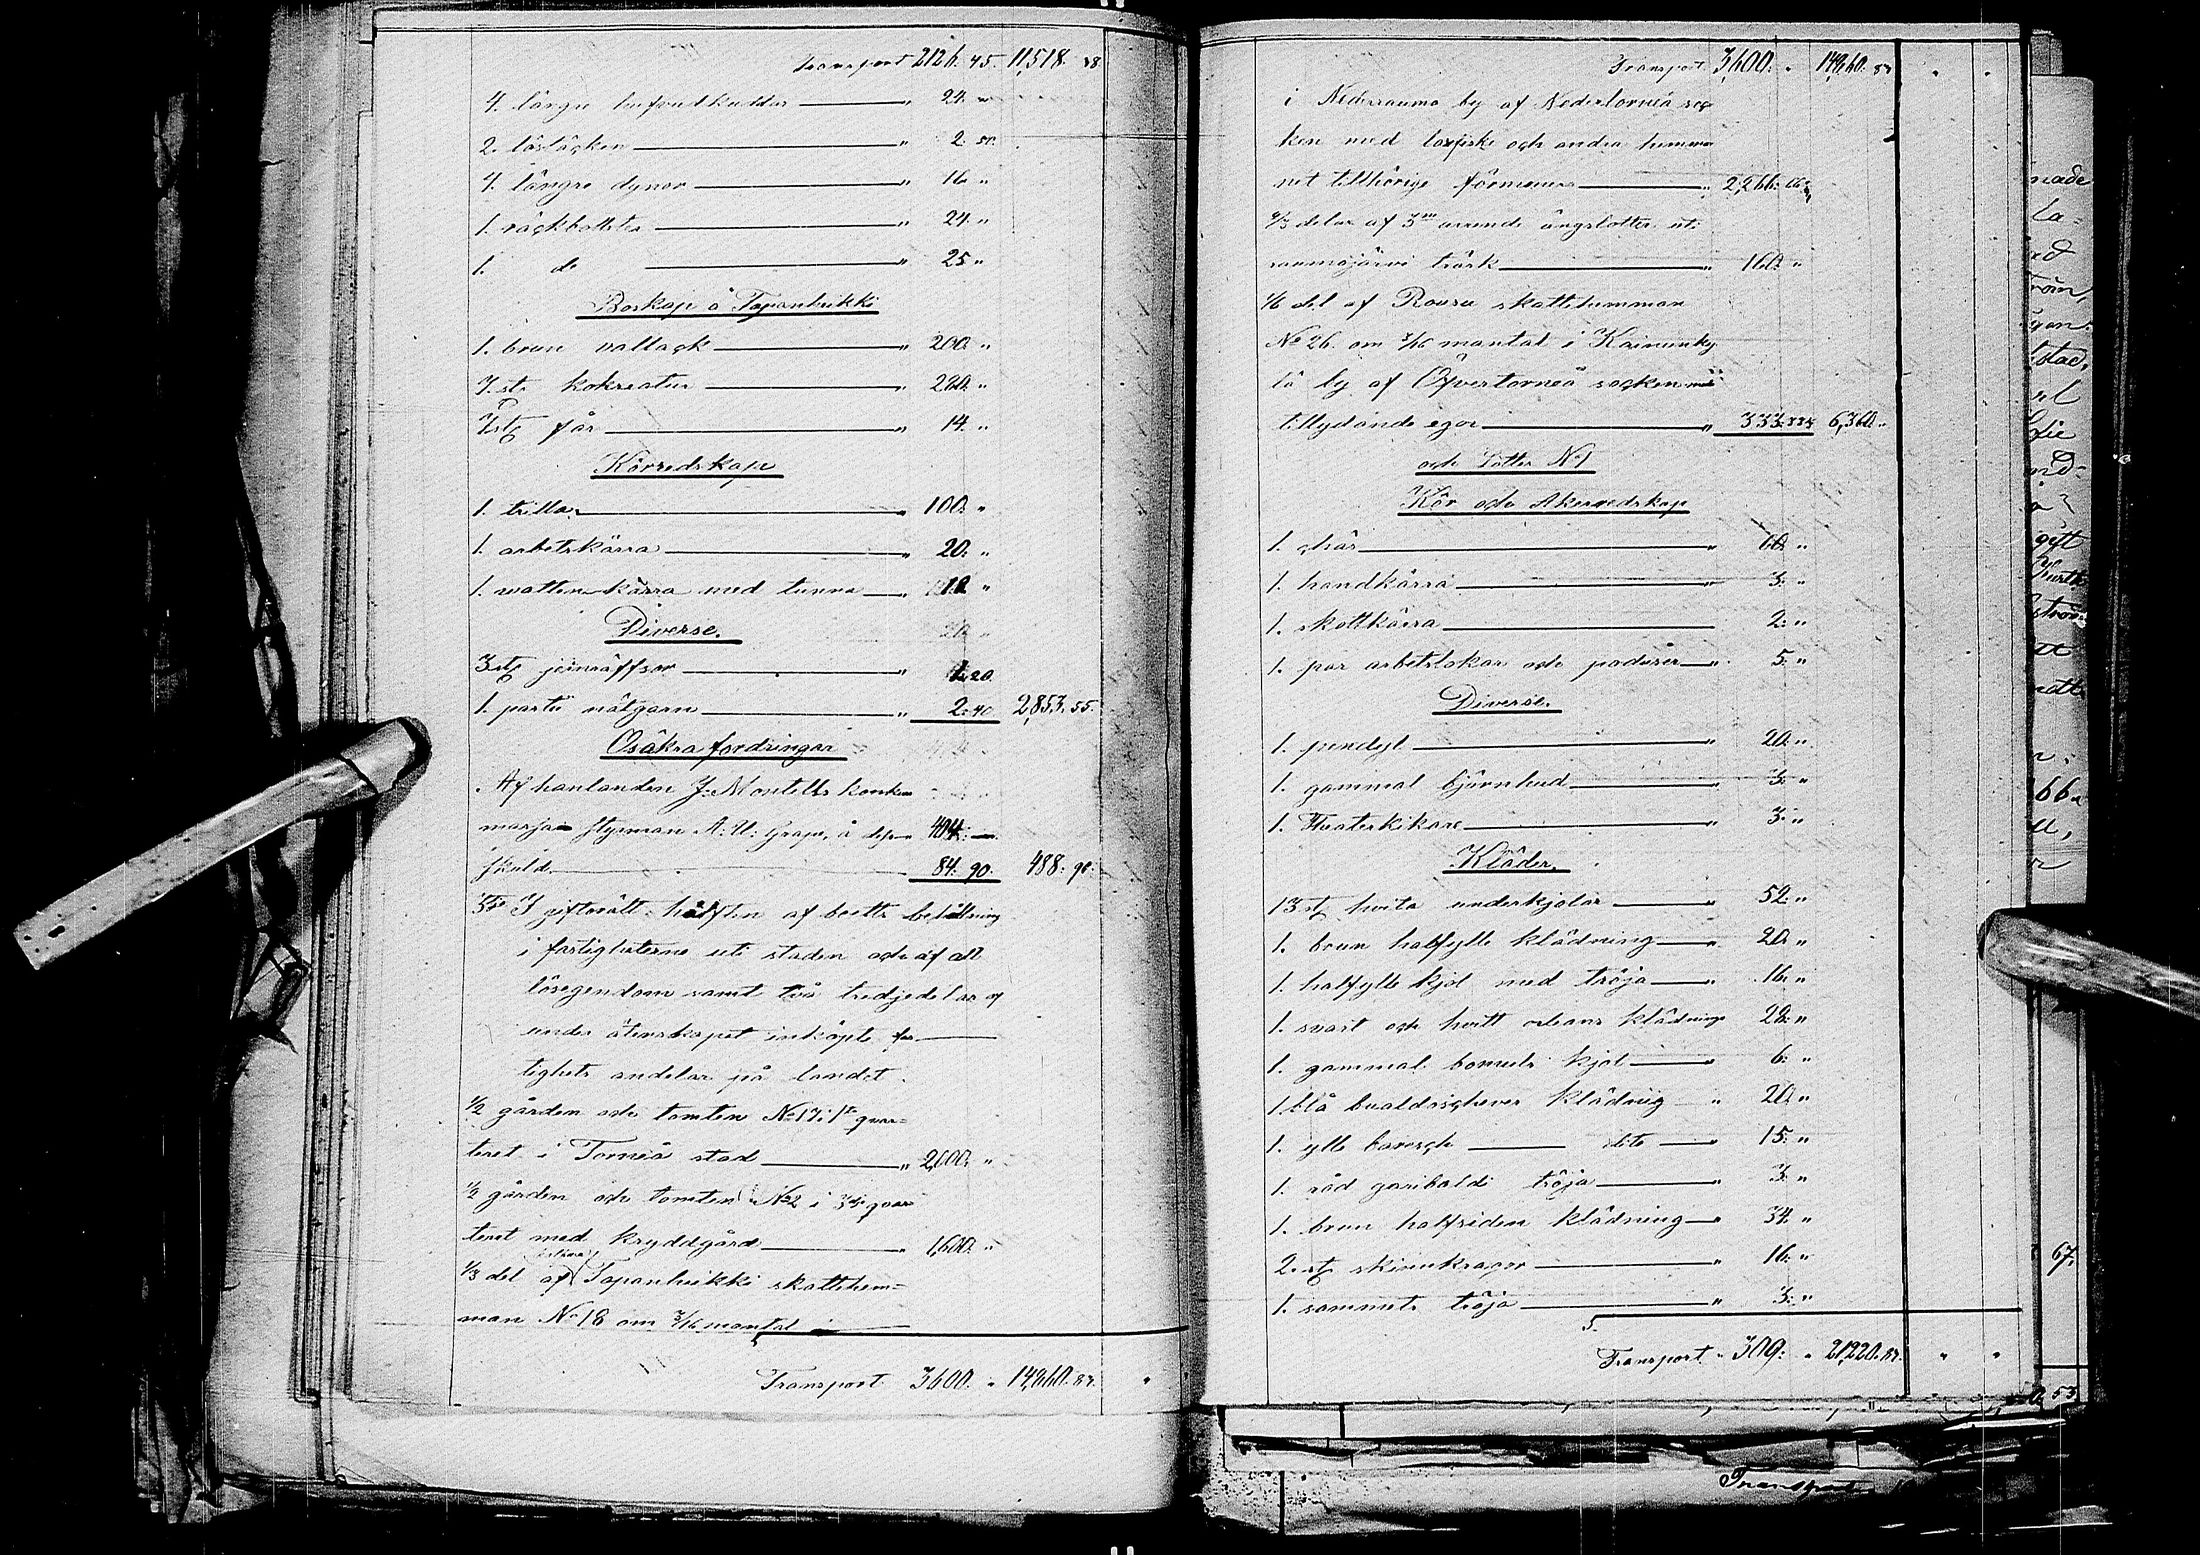 Transport 2126. 45. 11,518. 38
4. längre hufvudkuddar " 24. "
2. låslakan " 2. 50.
4. längre dynor " 16 "
1. räckbolster " 24. "
1. do " 25 "
Boskap å Tapanheikki
1. brun vallack " 200. "
7 st. kokreatur " 280. "
7 stÿ får " 14. "
Körredskap
1. trilla " 100. "
1. arbetskärra " 20. "
1. vatten kärra med tunna " 10 "
Diverse.
3 st " 1,20.
1. parti nätgarn " 2: 40 2,853. 55.
Osäkra fordringar
Af hanlanden J: Montells konkurs
massa Styrman A: U: Grape, å dess 404: —
skuld 84. 90. 488. 90.
I giftorätt hälften af boets behållning
i fastigheterne uti staden och af all
lösegendom samt två tredjedelar af
under äktenskapet inköpte fas
tighets andelar på landet.
1/2 gården och tomten No 17 i 1a qvar=
teret i Torneå stad " 2,000. "
1/2 gården och tomten No 2 i 3dje qvar
teret med kryddgård " 1,600. "
1/3 del af Tapanheikki skattehem=
man No 18 om 7/16 mantal
Transport 3600. " 14,860. 83.
Transport 3,600. " 14,860. 83
i Nedrrauma by af Nedertorneå soc
ken med laxfiske och andra hemma
net tillhörige förmåner " 2,266. 66
2/3 delar af 3ne ärrende ängslotter uti
raumojärvi träsk 160. "
1/6 del af Rousu skattehemman
No 26. om 7/16 mantal i Kainunky
lä by af Öfvertorneå socken med
tillydande egor " 333. 33 1/3 6,360. "
och Lotter No 1
Kör och Åkerredskap
1. chär " 60. "
1. handkärra " 3. "
1. skottkärra 2. "
1. par arbetslokar och " 5. "
Diverse.
1. pendyl " 20. "
1. gammal björnhud " 3. "
1. Theaterkikare " 3. "
Kläder.
13 st hvita underkjolar " 52. "
1. brun halfylle klädning " 20. "
1. halfylle kjol med tröja " 16. "
1. svart och hvitt orleans klädning 28. "
1. gammal bomuls kjol " 6. "
1 blå klädnig " 20. "
1. ylle baresch dito " 15. "
1. röd garibaldi tröja " 3. "
1. brun halfsiden klädning " 34. "
2. st. skinnkragar " 16. "
1. sammets tröja " 3. "
Transport " 309: " 21,220. 83.